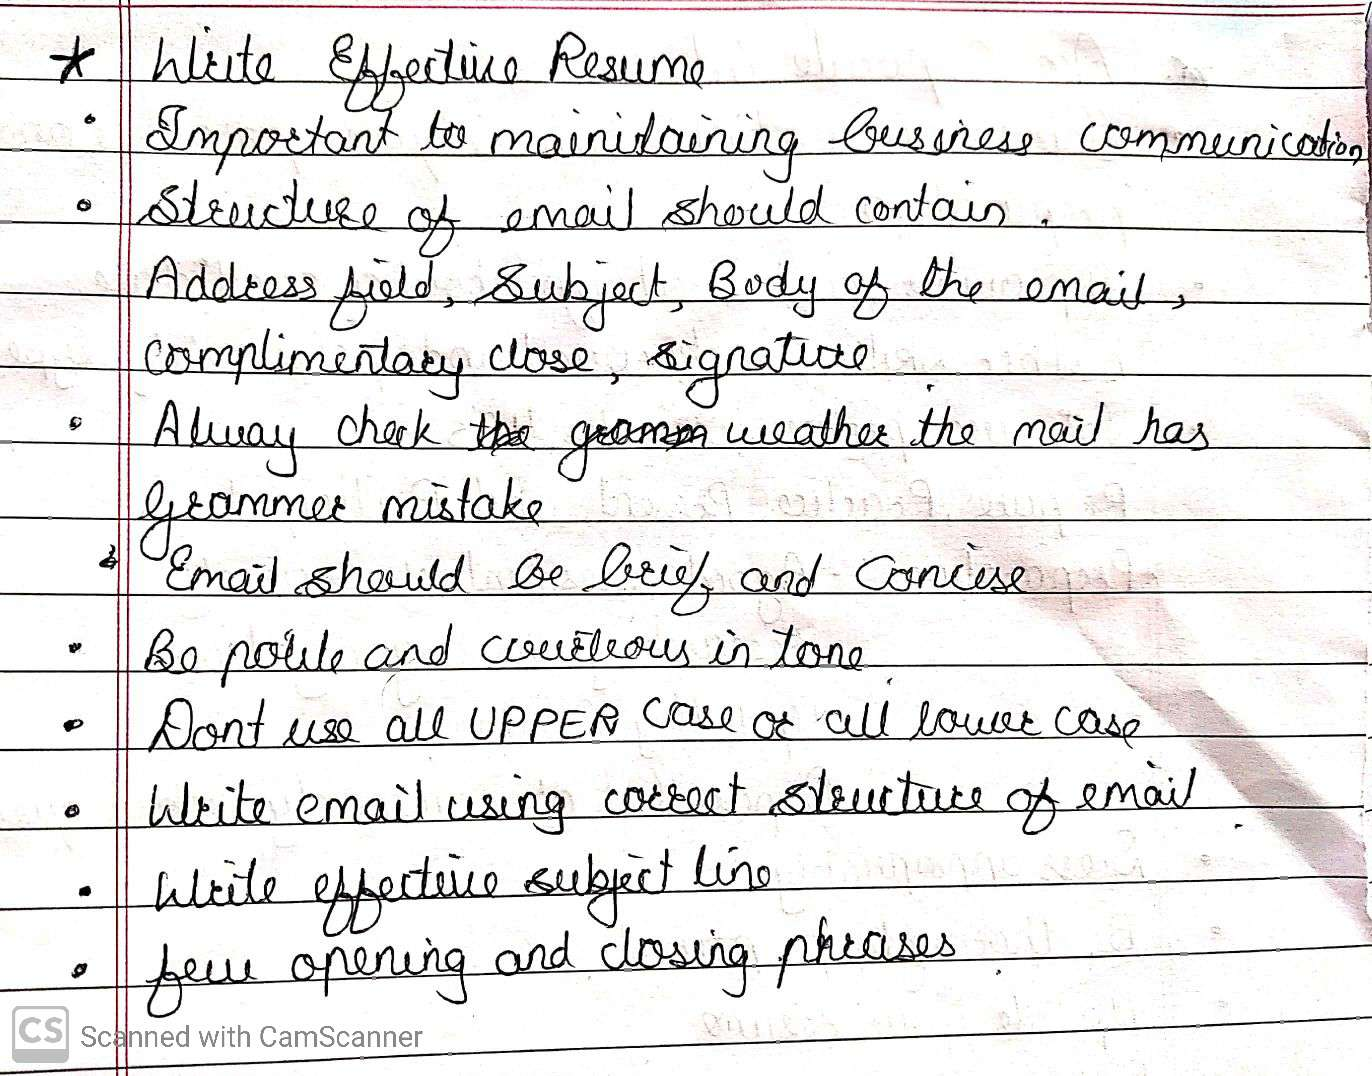 * Write Effective Resume
• Important to mainitaining business communication
• Structure of email should contain.
Address field, Subject, Body of the email,
complimentary close, signature
• Alway check the gramm weather the mail has
grammer mistake
• Email should be brief and Concise
• Be polite and courteous in tone
• Dont use all UPPER case or all lower case
• Write email using correct structure of email
• Write effective subject line
• few opening and closing phrases
CS Scanned with CamScanner